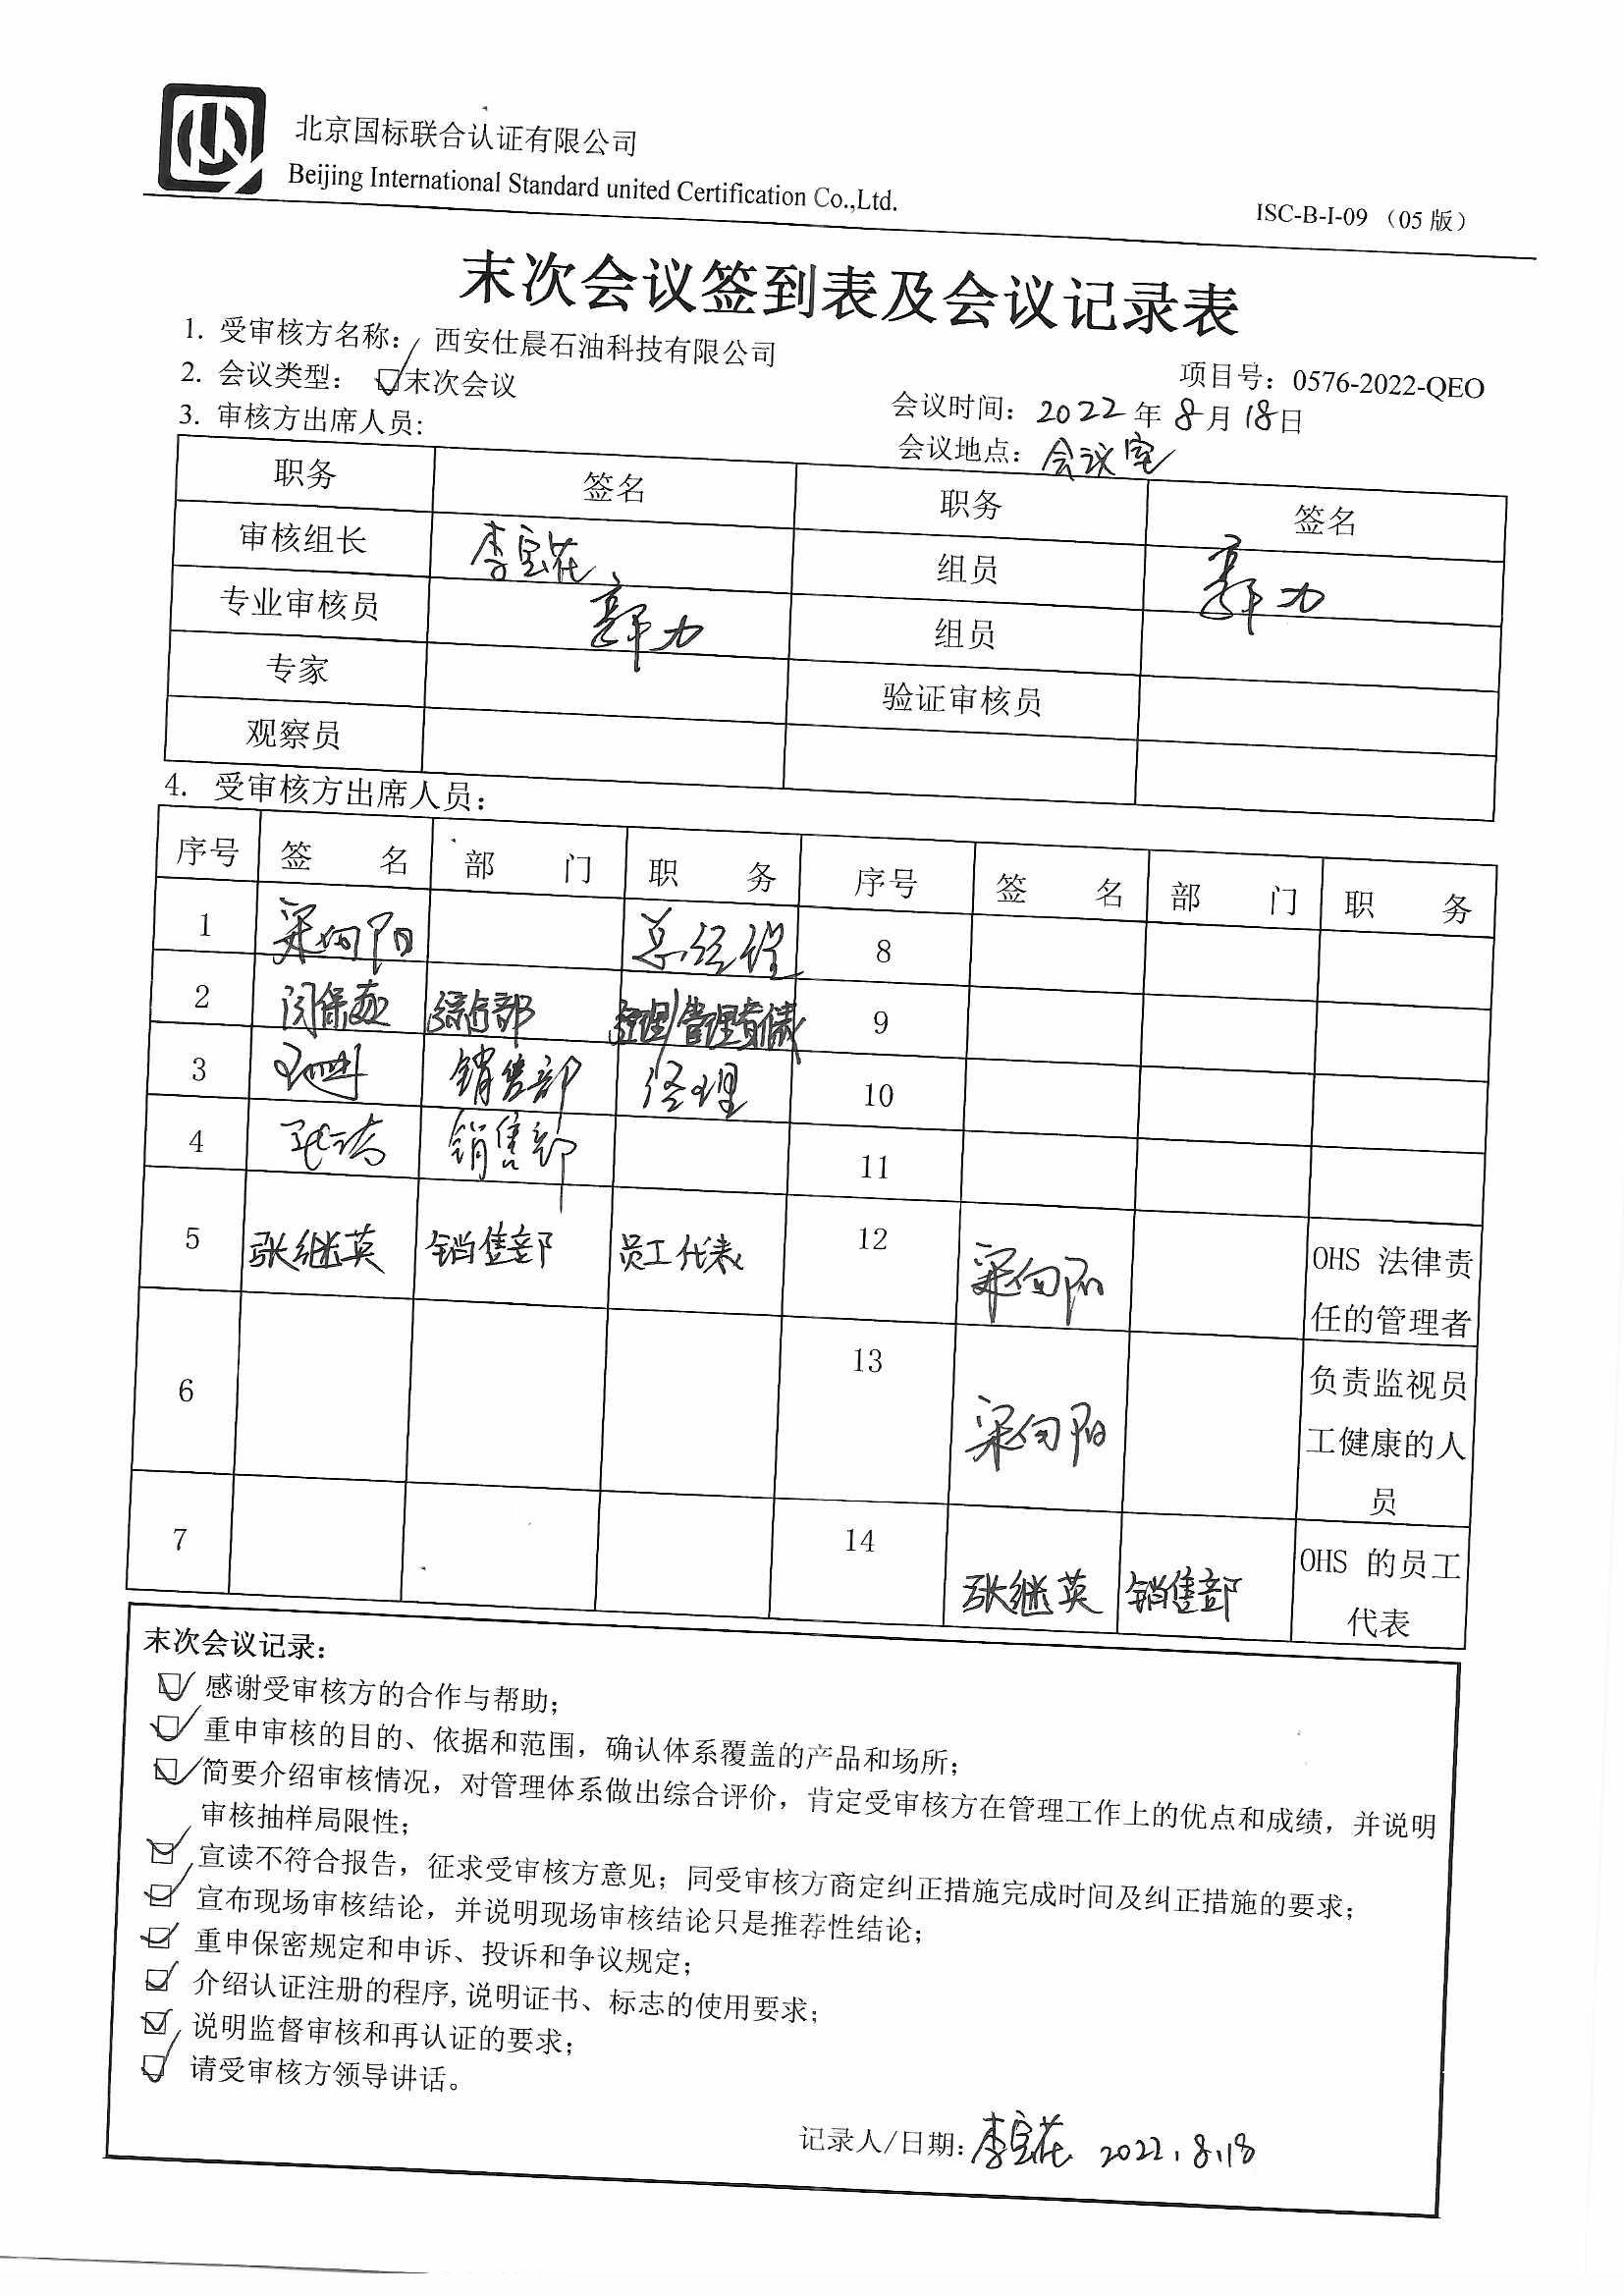 北京国标联合认证有限公司
Beijing International Standard united Certification Co.,Ltd.
ISC-B-I-09 （05 版）
末次会议签到表及会议记录表
1. 受审核方名称： 西安仕晨石油科技有限公司
项目号：0576-2022-QEO
2. 会议类型： 末次会议
会议时间：2022 年 8 月 18 日
3. 审核方出席人员：
会议地点：会议室
职务 签名 职务 签名
审核组长 李宝花 组员 郭力
专业审核员 郭力 组员
专家 验证审核员
观察员
4. 受审核方出席人员：
序号 签 名 部 门 职 务 序号 签 名 部 门 职 务
1 梁向阳 总经理 8
2 综合部 经理/管理者代表 9
3 销售部 经理 10
4 销售部 11
5 张继英 销售部 员工代表 12 梁向阳 OHS 法律责
任的管理者
6 13 梁向阳 负责监视员
工健康的人
员
7 14 张继英 销售部 OHS 的员工
代表
末次会议记录：
感谢受审核方的合作与帮助；
重申审核的目的、依据和范围，确认体系覆盖的产品和场所；
简要介绍审核情况，对管理体系做出综合评价，肯定受审核方在管理工作上的优点和成绩，并说明
审核抽样局限性；
宣读不符合报告，征求受审核方意见；同受审核方商定纠正措施完成时间及纠正措施的要求；
宣布现场审核结论，并说明现场审核结论只是推荐性结论；
重申保密规定和申诉、投诉和争议规定；
介绍认证注册的程序,说明证书、标志的使用要求；
说明监督审核和再认证的要求；
请受审核方领导讲话。
记录人/日期：李宝花 2022.8.18